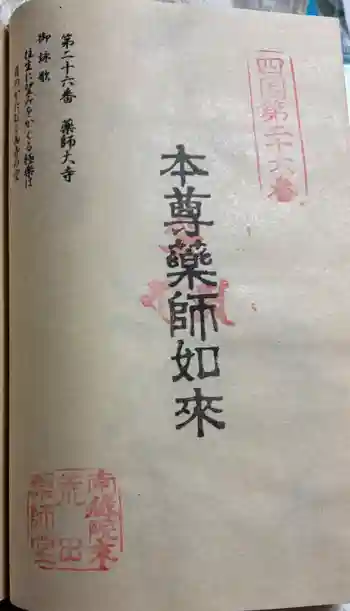 四国第二十六番
本尊薬師如來
第二十六番　薬師大寺
御詠歌
往生に望みをかくる極楽は
南蔵院東
荒田
薬師堂